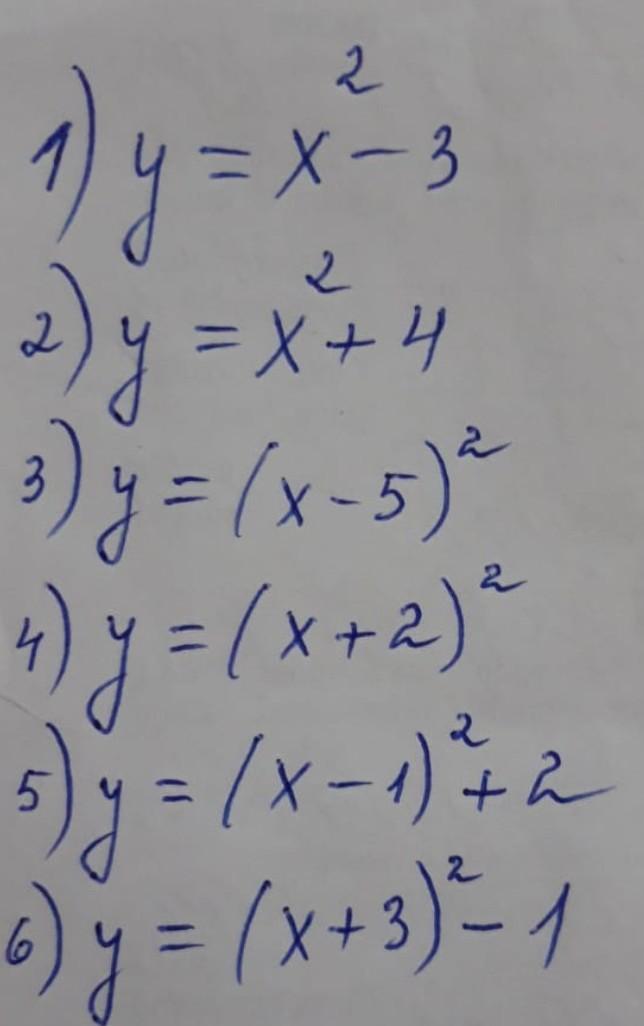 1) y = x² - 3
2) y = x² + 4
3) y = (x - 5)²
4) y = (x + 2)²
5) y = (x - 1)² + 2
6) y = (x + 3)² - 1